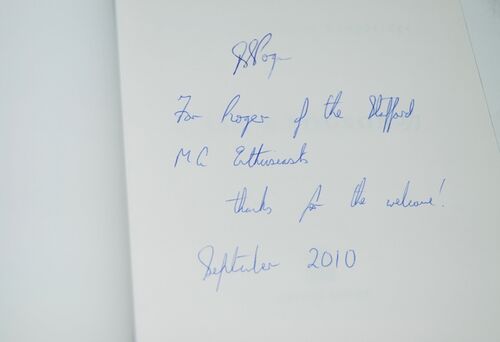 For Roger of the Stafford
MG Enthusiasts
thanks for the welcome!
September 2010